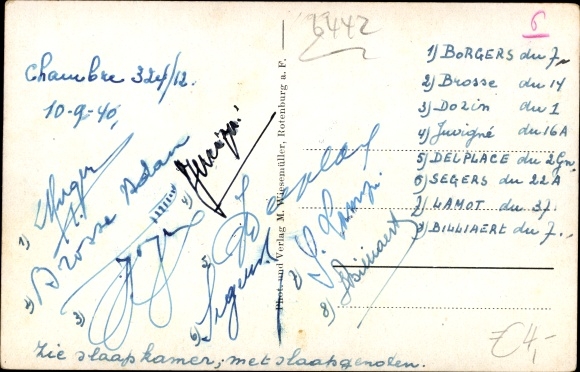 6442
6
Chambre 324/12.
10-9-40,
1) BORGERS du 7
2) Brosse du 14
3) Dozin du 1
4) Juvigné du 16A
5) DELPLACE du 2Gn.
6) SEGERS du 22A
7) LAMOT du 37.
8) BILLIAERT du 7.
Phot. und Verlag M. Wiesemüller, Rotenburg a. F.
1)
2) Brosse Adan
3)
4)
5)
6) Segers
7)
8) Billiaert
Zie slaapkamer, met slaapgenoten.
€4,-